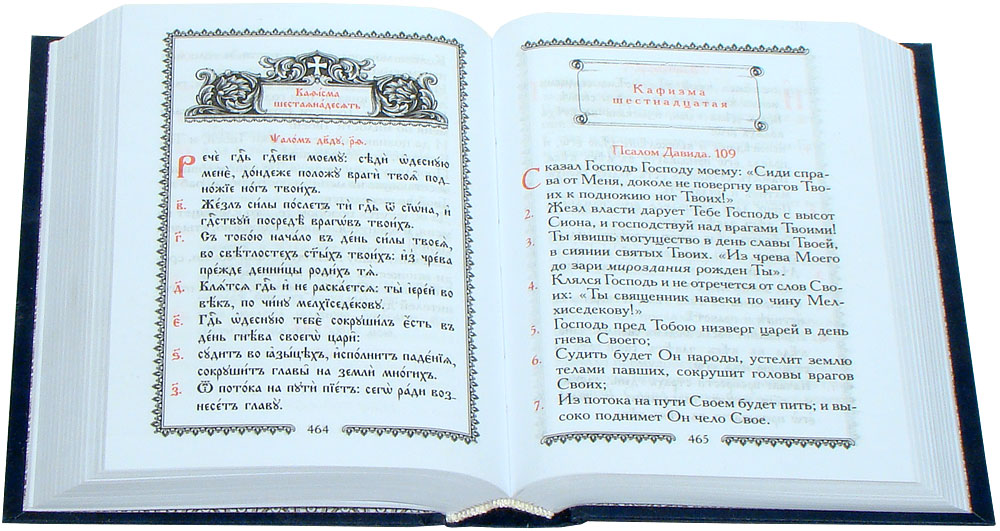 Каѳі́сма
шестаѧна́десѧть
Ѱало́мъ дв҃ду, р҃ѳ.
Рече́ гдⷭ҇ь гдⷭ҇еви моему̀: сѣдѝ ѡ҆десну́ю
менє̀, до́ндеже положу̀ враги̑ твоѧ̑ под_
но́жїе но́гъ твои́хъ.
в҃. Же́злъ си́лы по́слетъ тѝ гдⷭ҇ь ѿ сїѡ́на, и҆
гдⷭ҇ствꙋй посредѣ̀ врагѡ́въ твои́хъ.
г҃. Съ тобо́ю нача́ло въ де́нь си́лы твоеѧ̀,
во свѣ́тлостехъ ст҃ы́хъ твои́хъ: и҆з̾ чре́ва
пре́жде денни́цы роди́хъ тѧ̀.
д҃. Клѧ́тсѧ гдⷭ҇ь и҆ не раска́етсѧ: ты̀ і҆ере́й во
вѣ́къ, по чи́ну мелхїседе́кову.
є҃. Гдⷭ҇ь ѡ҆десну́ю тебє̀ сокруши́лъ є҆́сть въ
де́нь гнѣ́ва своегѡ̀ цари̑:
ѕ҃. су́дитъ во ꙗ҆зы́цѣхъ, и҆спо́лнитъ падє́нїѧ,
сокруши́тъ главы̑ на землѝ мно́гихъ.
з҃. Ѿ пото́ка на путѝ пїе́тъ: сегѡ̀ ра́ди воз_
несе́тъ главу̀.
464
Кафизма
шестнадцатая
Псалом Давида. 109
Сказал Господь Господу моему: «Сиди спра-
ва от Меня, доколе не повергну врагов Тво-
их к подножию ног Твоих!»
2. Жезл власти дарует Тебе Господь с высот
Сиона, и господствуй над врагами Твоими!
3. Ты явишь могущество в день славы Твоей,
в сиянии святых Твоих. «Из чрева Моего
до зари мироздания рожден Ты».
4. Клялся Господь и не отречется от слов Сво-
их: «Ты священник навеки по чину Мел-
хиседекову!»
5. Господь пред Тобою низверг царей в день
гнева Своего;
6. Судить будет Он народы, устелит землю
телами павших, сокрушит головы врагов
Своих;
7. Из потока на пути Своем будет пить; и вы-
соко поднимет Он чело Свое.
465